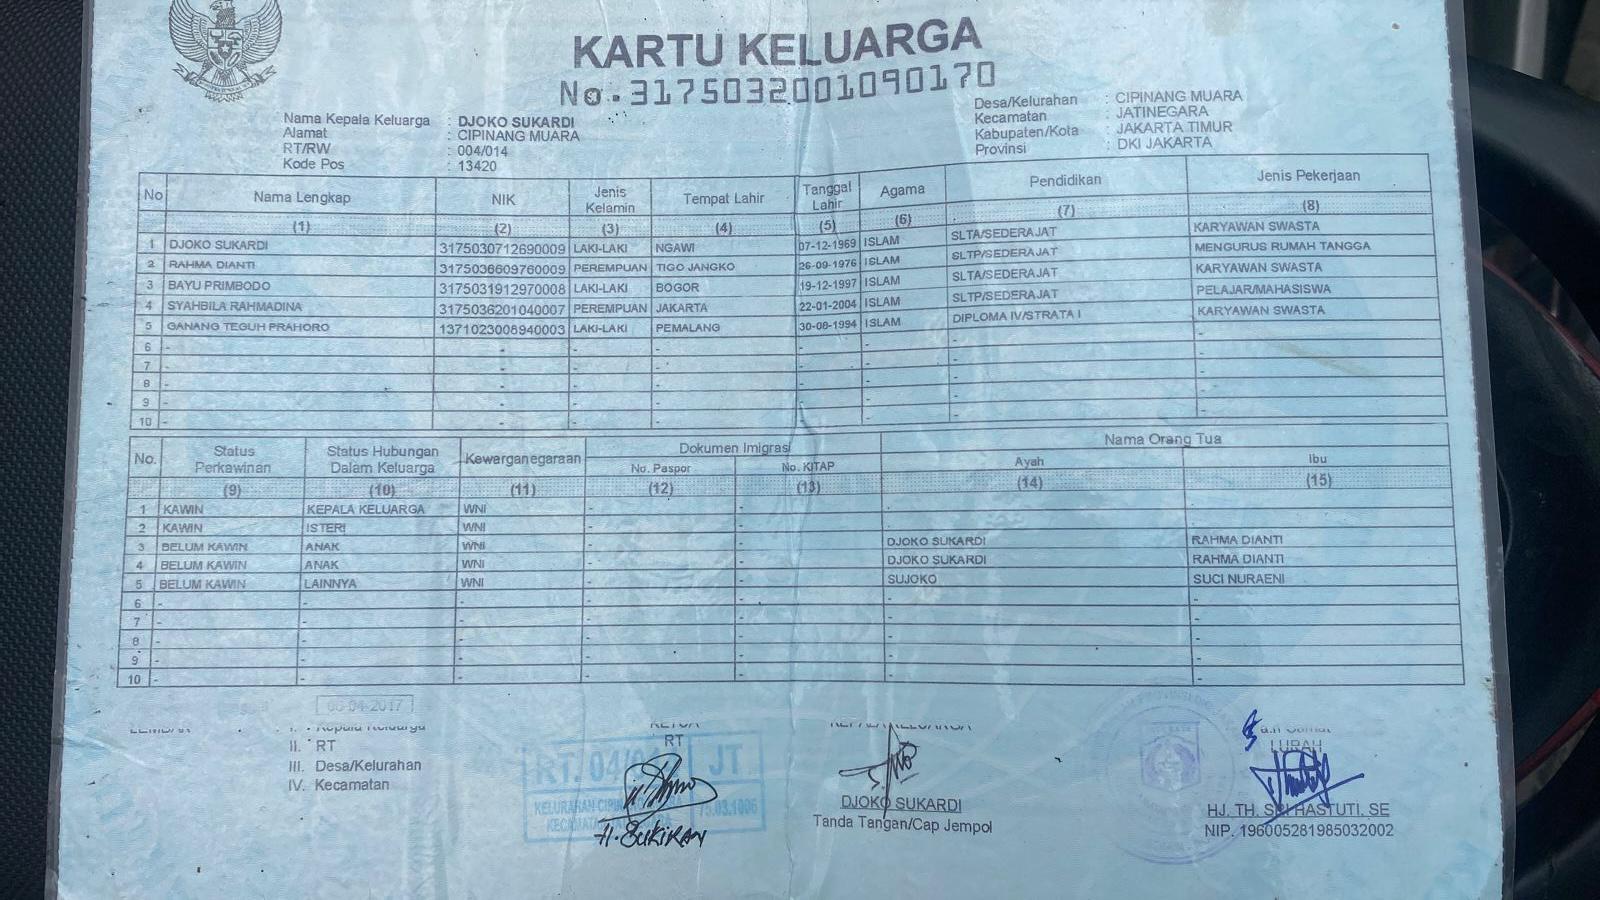 KARTU KELUARGA
No. 3175032001090170
Nama Kepala Keluarga : DJOKO SUKARDI
Alamat : CIPINANG MUARA
RT/RW : 004/014
Kode Pos : 13420
Desa/Kelurahan : CIPINANG MUARA
Kecamatan : JATINEGARA
Kabupaten/Kota : JAKARTA TIMUR
Provinsi : DKI JAKARTA
No Nama Lengkap NIK Jenis Kelamin Tempat Lahir Tanggal Lahir Agama Pendidikan Jenis Pekerjaan
(1) (2) (3) (4) (5) (6) (7) (8)
1 DJOKO SUKARDI 3175030712690009 LAKI-LAKI NGAWI 07-12-1969 ISLAM SLTA/SEDERAJAT KARYAWAN SWASTA
2 RAHMA DIANTI 3175036609760009 PEREMPUAN TIGO JANGKO 26-09-1976 ISLAM SLTP/SEDERAJAT MENGURUS RUMAH TANGGA
3 BAYU PRIMBODO 3175031912970008 LAKI-LAKI BOGOR 19-12-1997 ISLAM SLTA/SEDERAJAT KARYAWAN SWASTA
4 SYAHBILA RAHMADINA 3175036201040007 PEREMPUAN JAKARTA 22-01-2004 ISLAM SLTP/SEDERAJAT PELAJAR/MAHASISWA
5 GANANG TEGUH PRAHORO 1371023008940003 LAKI-LAKI PEMALANG 30-08-1994 ISLAM DIPLOMA IV/STRATA I KARYAWAN SWASTA
6 - - - - - - - -
7 - - - - - - - -
8 - - - - - - - -
9 - - - - - - - -
10 - - - - - - - -
No. Status Perkawinan Status Hubungan Dalam Keluarga Kewarganegaraan Dokumen Imigrasi Nama Orang Tua
No. Paspor No. KITAP Ayah Ibu
(9) (10) (11) (12) (13) (14) (15)
1 KAWIN KEPALA KELUARGA WNI - - - -
2 KAWIN ISTERI WNI - - - -
3 BELUM KAWIN ANAK WNI - - DJOKO SUKARDI RAHMA DIANTI
4 BELUM KAWIN ANAK WNI - - DJOKO SUKARDI RAHMA DIANTI
5 BELUM KAWIN LAINNYA WNI - - SUJOKO SUCI NURAENI
6 - - - - - - -
7 - - - - - - -
8 - - - - - - -
9 - - - - - - -
10 - - - - - - -
06-04-2017
LEMBAR I. Kepala Keluarga
II. RT
III. Desa/Kelurahan
IV. Kecamatan
KETUA
RT
RT. 04/ JT
H. SUKIRAN
KEPALA KELUARGA
DJOKO SUKARDI
Tanda Tangan/Cap Jempol
a.n Camat
LURAH
HJ. TH. SRI HASTUTI, SE
NIP. 196005281985032002